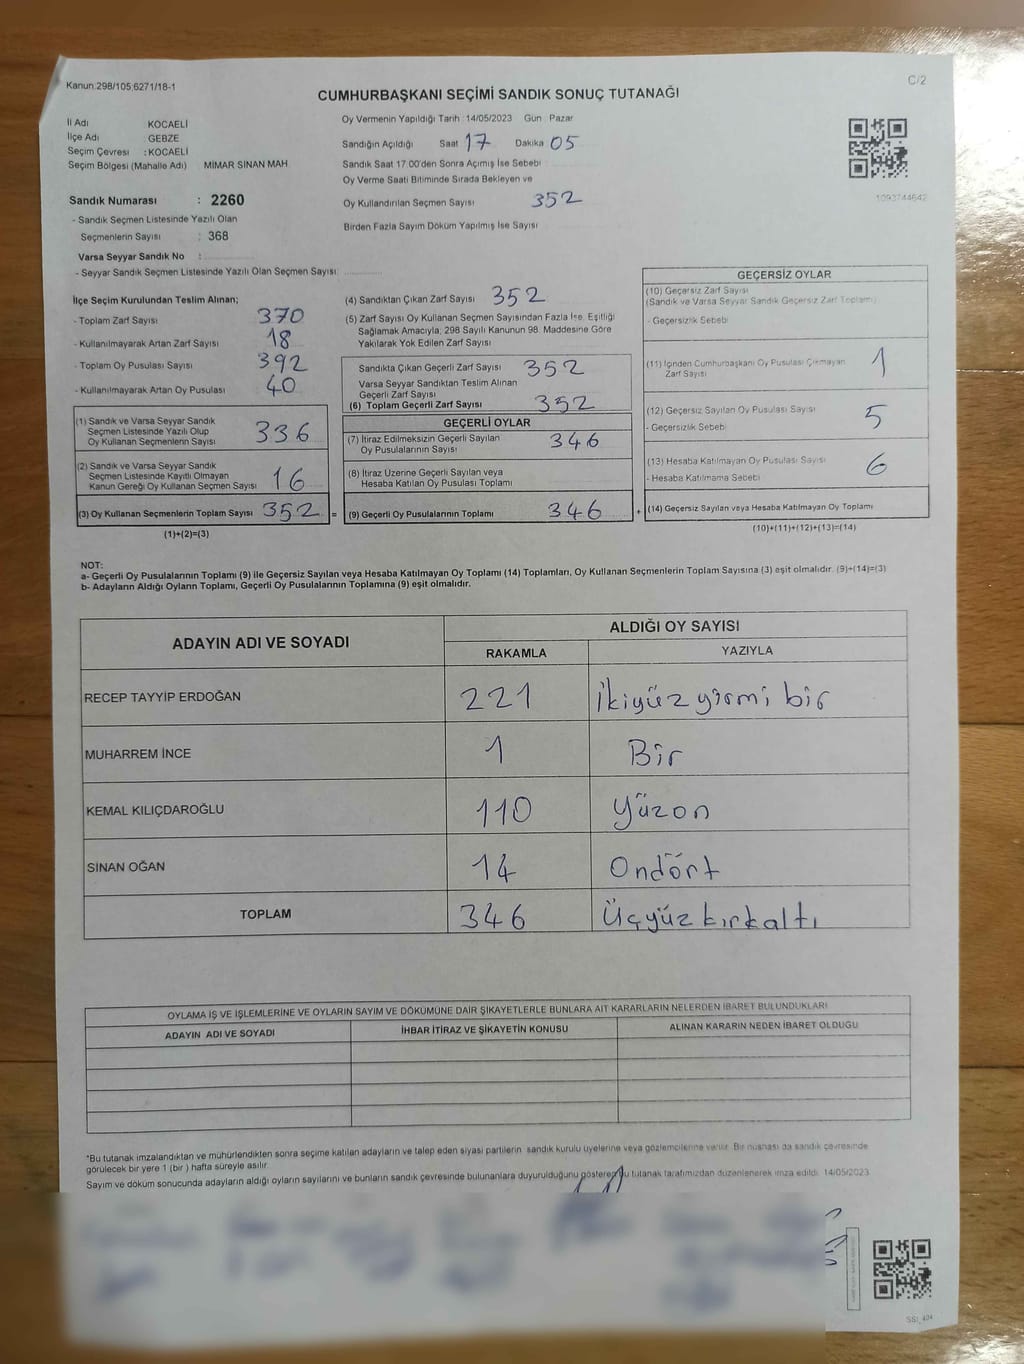 Kanun:298/105;6271/18-1
C/2
CUMHURBAŞKANI SEÇİMİ SANDIK SONUÇ TUTANAĞI
İl Adı KOCAELİ
İlçe Adı GEBZE
Seçim Çevresi : KOCAELİ
Seçim Bölgesi (Mahalle Adı) MİMAR SİNAN MAH.
Oy Vermenin Yapıldığı Tarih :14/05/2023 Gün : Pazar
Sandığın Açıldığı Saat 17 Dakika 05
Sandık Saat 17.00'den Sonra Açımış İse Sebebi :
Oy Verme Saati Bitiminde Sırada Bekleyen ve
Oy Kullandırılan Seçmen Sayısı 352
Birden Fazla Sayım Döküm Yapılmış İse Sayısı
1093744642
Sandık Numarası : 2260
- Sandık Seçmen Listesinde Yazılı Olan
Seçmenlerin Sayısı : 368
Varsa Seyyar Sandık No :
- Seyyar Sandık Seçmen Listesinde Yazılı Olan Seçmen Sayısı:
İlçe Seçim Kurulundan Teslim Alınan;
- Toplam Zarf Sayısı 370
- Kullanılmayarak Artan Zarf Sayısı 18
- Toplam Oy Pusulası Sayısı 392
- Kullanılmayarak Artan Oy Pusulası 40
(1) Sandık ve Varsa Seyyar Sandık
Seçmen Listesinde Yazılı Olup
Oy Kullanan Seçmenlerin Sayısı 336
(2) Sandık ve Varsa Seyyar Sandık
Seçmen Listesinde Kayıtlı Olmayan
Kanun Gereği Oy Kullanan Seçmen Sayısı 16
(3) Oy Kullanan Seçmenlerin Toplam Sayısı 352 =
(1)+(2)=(3)
(4) Sandıktan Çıkan Zarf Sayısı 352
(5) Zarf Sayısı Oy Kullanan Seçmen Sayısından Fazla İse, Eşitliği
Sağlamak Amacıyla, 298 Sayılı Kanunun 98. Maddesine Göre
Yakılarak Yok Edilen Zarf Sayısı
Sandıkta Çıkan Geçerli Zarf Sayısı 352
Varsa Seyyar Sandıktan Teslim Alınan
Geçerli Zarf Sayısı
(6) Toplam Geçerli Zarf Sayısı 352
GEÇERLİ OYLAR
(7) İtiraz Edilmeksizin Geçerli Sayılan
Oy Pusulalarının Sayısı 346
(8) İtiraz Üzerine Geçerli Sayılan veya
Hesaba Katılan Oy Pusulası Toplamı
(9) Geçerli Oy Pusulalarının Toplamı 346 +
GEÇERSİZ OYLAR
(10) Geçersiz Zarf Sayısı
(Sandık ve Varsa Seyyar Sandık Geçersiz Zarf Toplamı)
- Geçersizlik Sebebi
(11) İçinden Cumhurbaşkanı Oy Pusulası Çıkmayan
Zarf Sayısı 1
(12) Geçersiz Sayılan Oy Pusulası Sayısı 5
- Geçersizlik Sebebi
(13) Hesaba Katılmayan Oy Pusulası Sayısı 6
- Hesaba Katılmama Sebebi
(14) Geçersiz Sayılan veya Hesaba Katılmayan Oy Toplamı
(10)+(11)+(12)+(13)=(14)
NOT:
a- Geçerli Oy Pusulalarının Toplamı (9) ile Geçersiz Sayılan veya Hesaba Katılmayan Oy Toplamı (14) Toplamları, Oy Kullanan Seçmenlerin Toplam Sayısına (3) eşit olmalıdır. (9)+(14)=(3)
b- Adayların Aldığı Oyların Toplamı, Geçerli Oy Pusulalarının Toplamına (9) eşit olmalıdır.
ADAYIN ADI VE SOYADI ALDIĞI OY SAYISI
RAKAMLA YAZIYLA
RECEP TAYYİP ERDOĞAN 221 İkiyüz yirmi bir
MUHARREM İNCE 1 Bir
KEMAL KILIÇDAROĞLU 110 Yüzon
SİNAN OĞAN 14 Ondört
TOPLAM 346 Üçyüz kırkaltı
OYLAMA İŞ VE İŞLEMLERİNE VE OYLARIN SAYIM VE DÖKÜMÜNE DAİR ŞİKAYETLERLE BUNLARA AİT KARARLARIN NELERDEN İBARET BULUNDUKLARI
ADAYIN ADI VE SOYADI İHBAR İTİRAZ VE ŞİKAYETİN KONUSU ALINAN KARARIN NEDEN İBARET OLDUĞU
*Bu tutanak imzalandıktan ve mühürlendikten sonra seçime katılan adayların ve talep eden siyasi partilerin sandık kurulu üyelerine veya gözlemcilerine verilir. Bir nüshası da sandık çevresinde
görülecek bir yere 1 (bir ) hafta süreyle asılır.
Sayım ve döküm sonucunda adayların aldığı oyların sayılarını ve bunların sandık çevresinde bulunanlara duyurulduğunu gösteren bu tutanak tarafımızdan düzenlenerek imza edildi. 14/05/2023